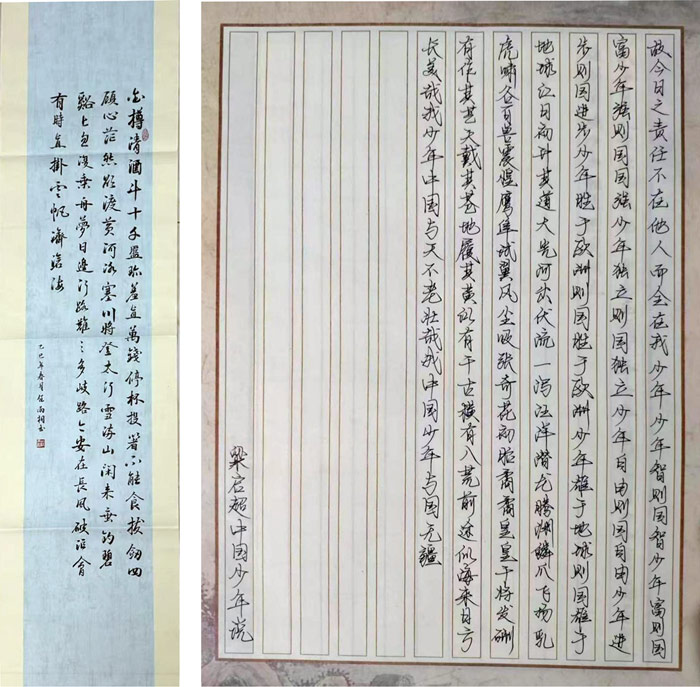 金樽清酒斗十千盤珍羞直萬錢停杯投箸不能食拔劍四
顧心茫然欲渡黃河冰塞川將登太行雪滿山閑來垂釣碧
谿上忽復乘舟夢日邊行路難々多歧路今安在長風破浪會
有時直掛雲帆濟滄海
乙巳年春月
故今日之责任不在他人而全在我少年少年智则国智少年富则国
富少年强则国国强少年独立则国独立少年自由则国自由少年进
步则国进步少年胜于欧洲则国胜于欧洲少年雄于地球则国雄于
地球红日初升其道大光河出伏流一泻汪洋潜龙腾渊鳞爪飞扬乳
虎啸谷百兽震惶鹰隼试翼风尘吸张奇花初胎矞矞皇皇干将发硎
有作其芒天戴其苍地履其黄纵有千古横有八荒前途似海来日方
长美哉我少年中国与天不老壮哉我中国少年与国无疆
梁启超中国少年说